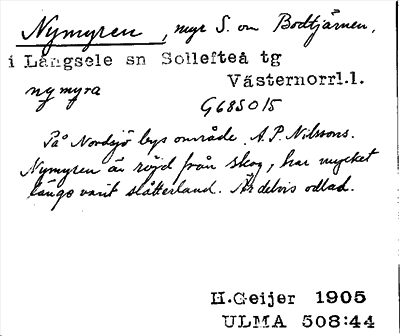 Nymyren, myr S. om Bodtjärnen,
i Långsele sn Sollefteå tg
Västernorrl.l.
nymyra
G685015
På Nordsjö bys område. A.P. Nilssons.
Nymyren är röjd från skog, har mycket
länge varit slåtterland. Är delvis odlad.
H.Geijer 1905
ULMA 508:44